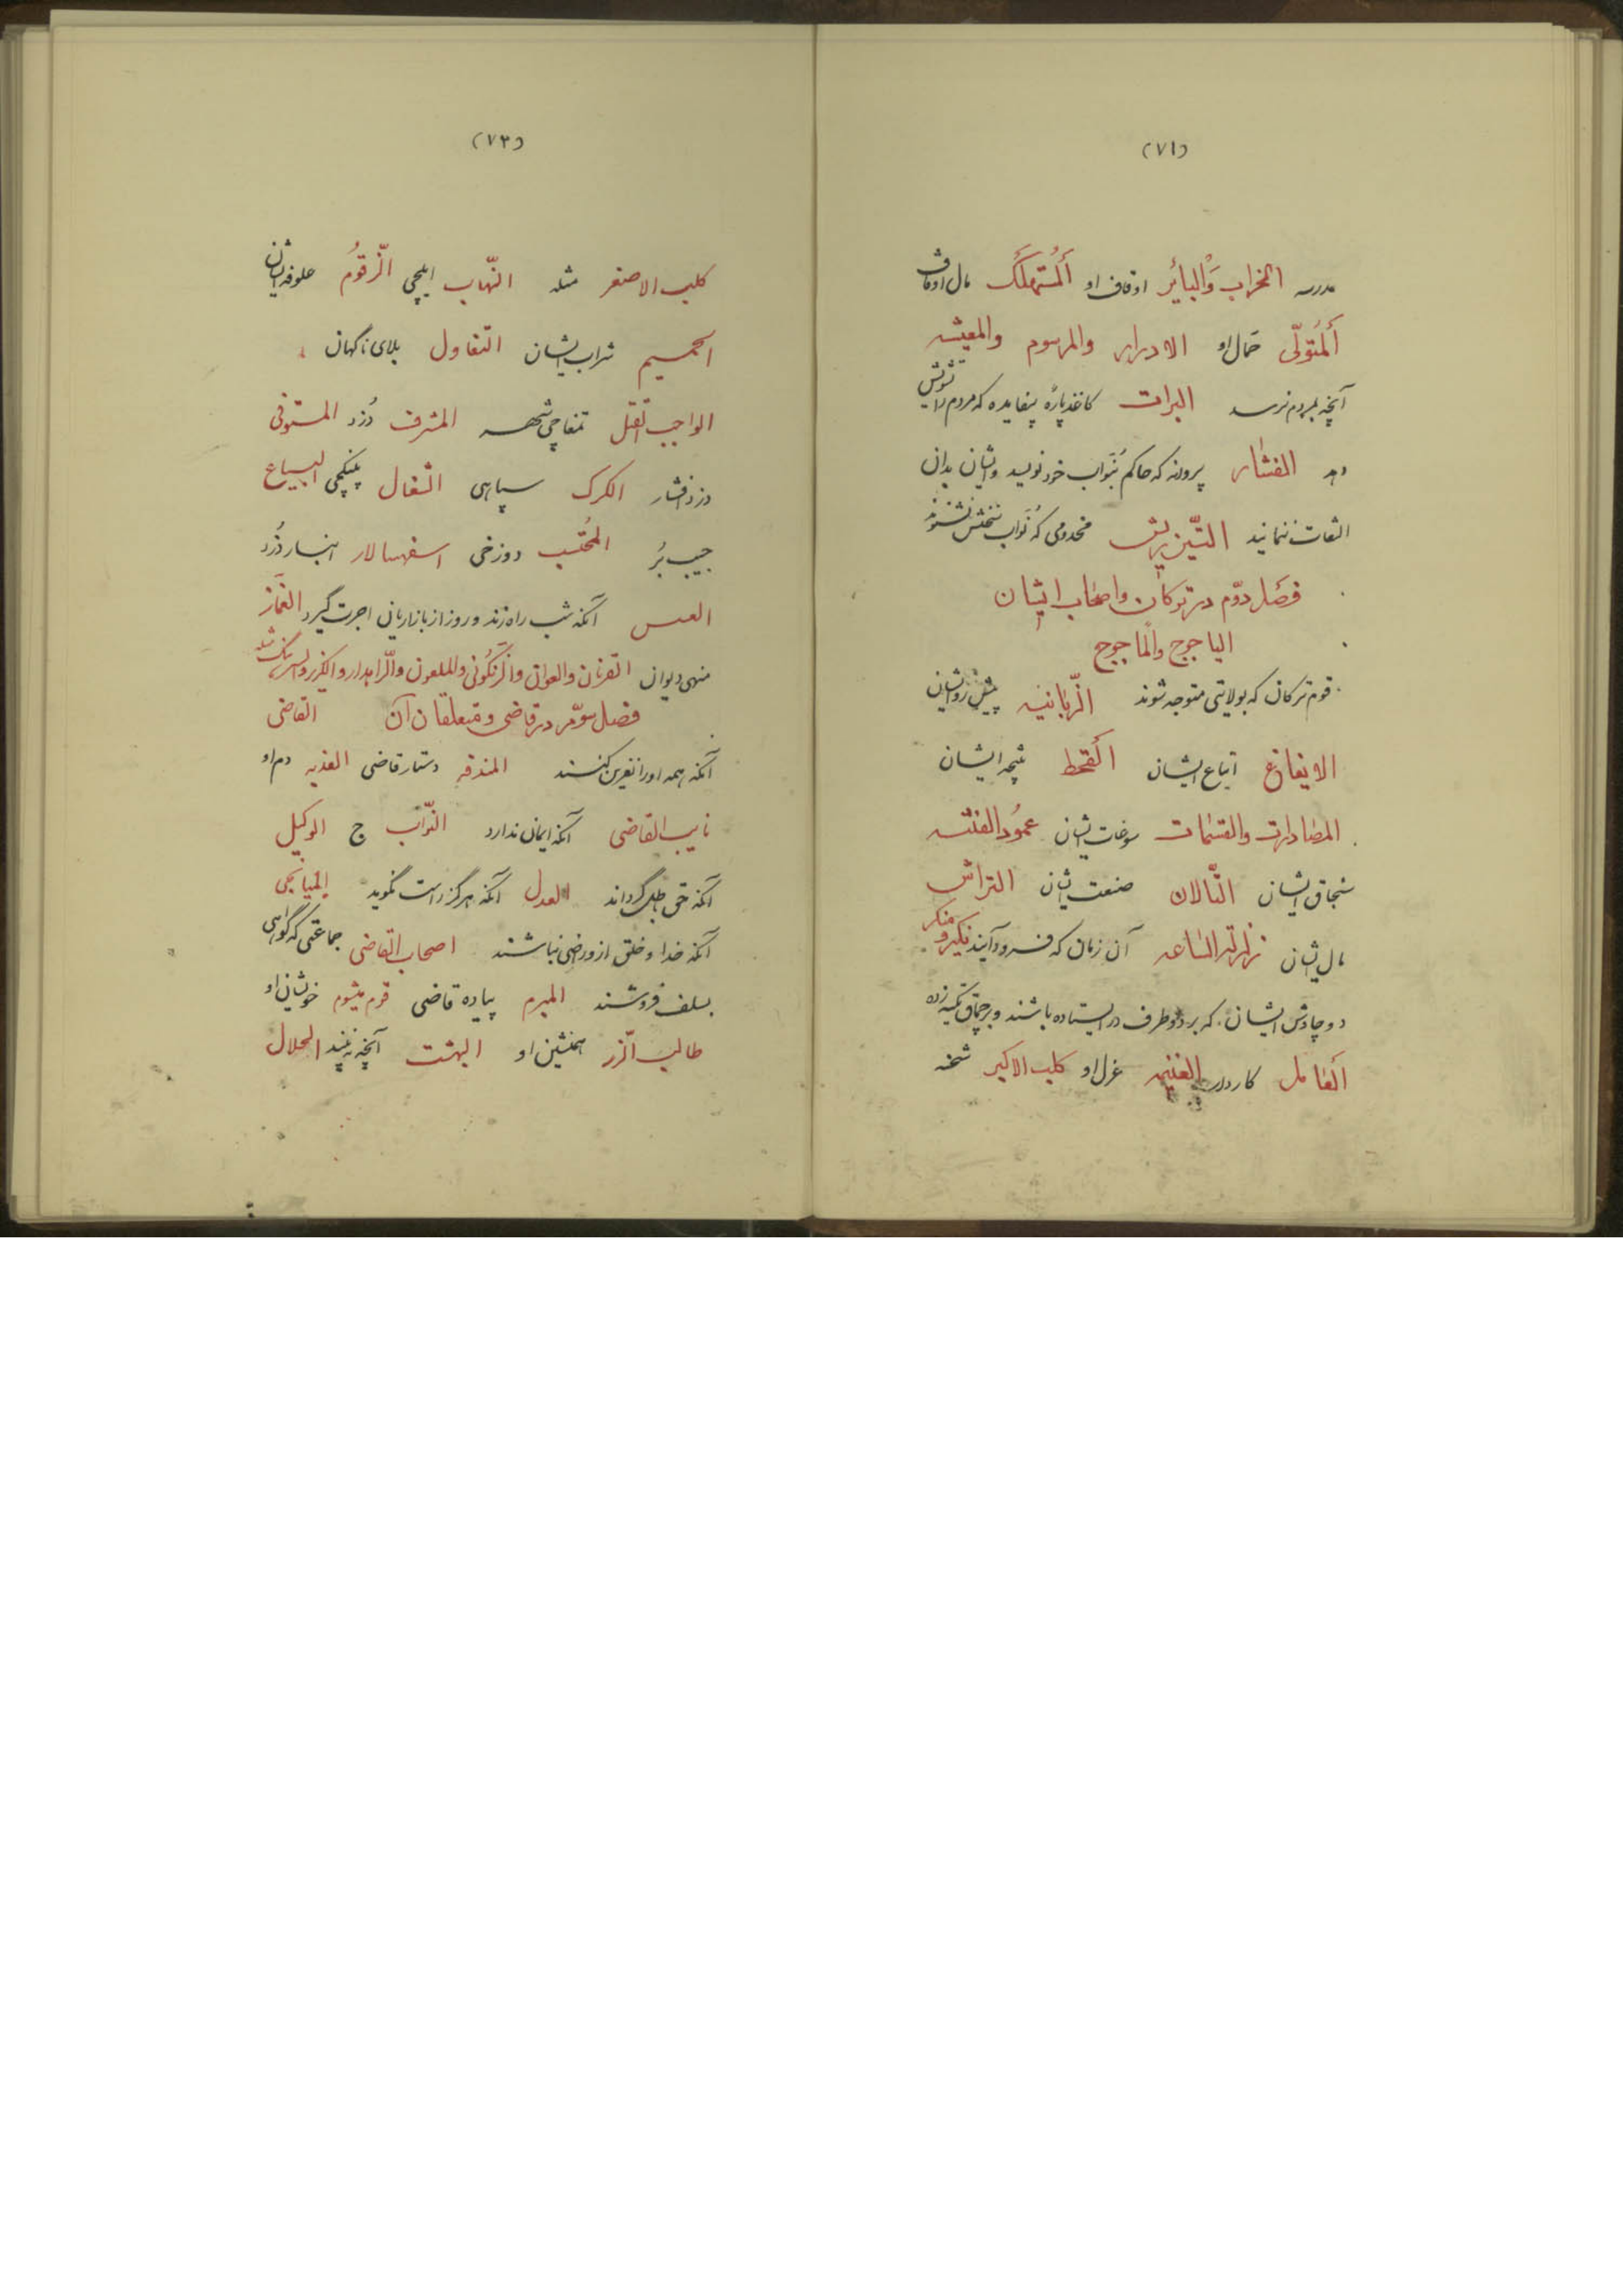 (٧١)
مدرسه الخراب وَالْبائر اوقاف او اَلْمُستَهلَک مال اوقاف
اَلمُتَولّی حمال او الادرار والمرسوم والمعیشه
آنچه بمردم نرسد البرات کاغذ پارهٔ بیفایده که مردم را تشویش
دهد الفشار پروانه که حاکم بنُوّاب خود نویسد وایشان بدان
التفات ننمایند التّیز بریش مخدومی که نُوّاب سخنش نشنوند
فصل دوّم در ترکان واصحاب ایشان
الیاجوج والماجوج
قوم ترکان که بولایتی متوجه شوند الزّبانیه پیش رو ایشان
الایغاغ اتباع ایشان اَلقحط نتیجه ایشان
المصادرات والقسمات سوغات ایشان عمُود الفتنه
سنجاق ایشان التّالان صنعت ایشان التراش
مال ایشان زلزلة الساعه آن زمان که فرود آیند نکیر و منکر
دو چاوش ایشان که بر دو طرف در ایستاده باشند و بر چماق تکیه زده
اَلعامل کاردار الغنیمه عزل او کلب الاکبر شحنه
(٧٣)
کلب الاصغر مثله النّهاب ایلچی الزّقوُم علوفه ایشان
الحمیم شراب ایشان التغاول بلای ناگهان
الواجب القتل تمغاچی شهر المشرف دُزد المستوفی
دزد افشار الکرک سپاهی الشغال بیتکچی البیاع
جیب بُر المُحتَسب دوزخی اسفهسالار انبار دُزد
العسس آنکه شب راه زند و روز از بازاریان اجرت گیرد الغماز
منهی دیوان القرنان والعوان والزنکُونی والملعون والراهدار والکزر والسرنک مثله
فصل سوّم در قاضی ومتعلقان آن القاضی
آنکه همه او را نفرین کنند المندفه دستار قاضی العذبه دم او
نایب القاضی آنکه ایمان ندارد النّوّاب ج الوکیل
آنکه حق باطل گرداند العدل آنکه هرگز راست نگوید المیانجی
آنکه خدا و خلق ازو راضی نباشند اصحاب القاضی جماعتی که گواهی
بسلف فروشند المبرم پیاده قاضی قوم میشوم خویشان او
طالب الزّر همنشین او البهشت آنچه نه بینند الحلال